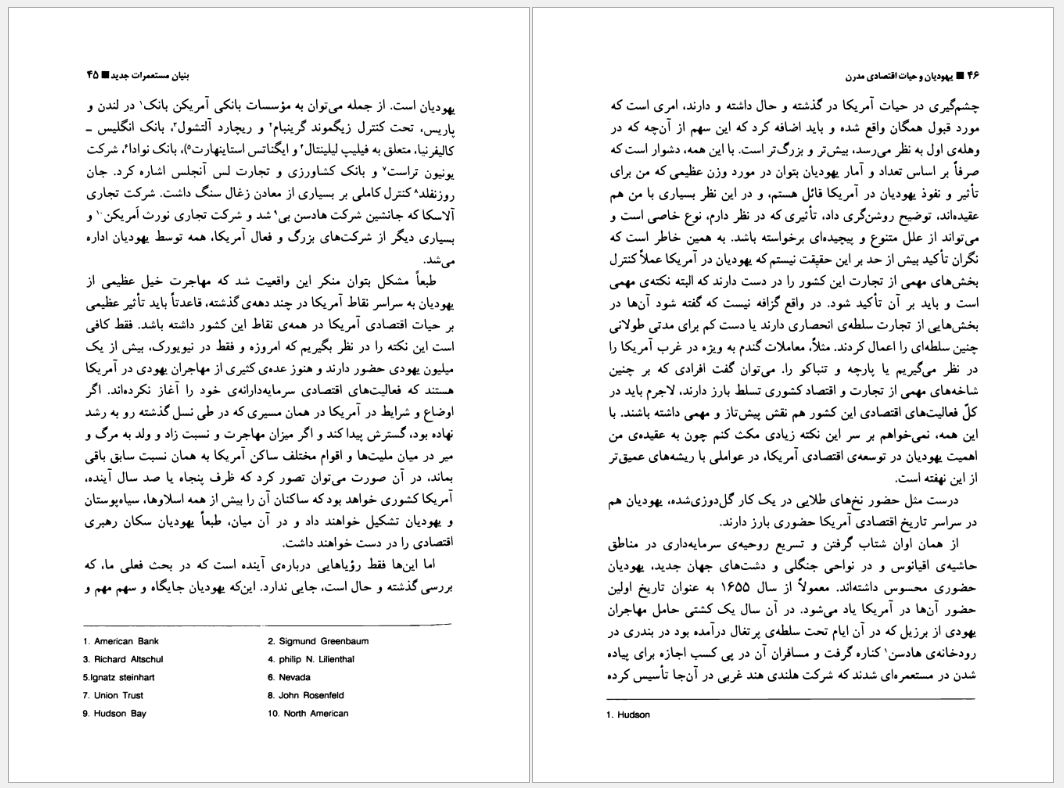 بنیان مستعمرات جدید ■ ۴۵
یهودیان است. از جمله می‌توان به مؤسسات بانکی آمریکن بانک۱ در لندن و
پاریس، تحت کنترل زیگموند گرینبام۲ و ریچارد آلتشول۳، بانک انگلیس ـ
کالیفرنیا، متعلق به فیلیپ لیلینتال۴ و ایگناتس استاینهارت۵)، بانک نوادا۶، شرکت
یونیون تراست۷ و بانک کشاورزی و تجارت لس آنجلس اشاره کرد. جان
روزنفلد۸ کنترل کاملی بر بسیاری از معادن زغال سنگ داشت. شرکت تجاری
آلاسکا که جانشین شرکت هادسن بی۹ شد و شرکت تجاری نورث آمریکن۱۰ و
بسیاری دیگر از شرکت‌های بزرگ و فعال آمریکا، همه توسط یهودیان اداره
می‌شد.
طبعاً مشکل بتوان منکر این واقعیت شد که مهاجرت خیل عظیمی از
یهودیان به سراسر نقاط آمریکا در چند دهه‌ی گذشته، قاعدتاً باید تأثیر عظیمی
بر حیات اقتصادی آمریکا در همه‌ی نقاط این کشور داشته باشد. فقط کافی
است این نکته را در نظر بگیریم که امروزه و فقط در نیویورک، بیش از یک
میلیون یهودی حضور دارند و هنوز عده‌ی کثیری از مهاجران یهودی در آمریکا
هستند که فعالیت‌های اقتصادی سرمایه‌دارانه‌ی خود را آغاز نکرده‌اند. اگر
اوضاع و شرایط در آمریکا در همان مسیری که در طی نسل گذشته رو به رشد
نهاده بود، گسترش پیدا کند و اگر میزان مهاجرت و نسبت زاد و ولد به مرگ و
میر در میان ملیت‌ها و اقوام مختلف ساکن آمریکا به همان نسبت سابق باقی
بماند، در آن صورت می‌توان تصور کرد که ظرف پنجاه یا صد سال آینده،
آمریکا کشوری خواهد بود که ساکنان آن را بیش از همه اسلاوها، سیاه‌پوستان
و یهودیان تشکیل خواهند داد و در آن میان، طبعاً یهودیان سکان رهبری
اقتصادی را در دست خواهند داشت.
اما این‌ها فقط رؤیاهایی درباره‌ی آینده است که در بحث فعلی ما، که
بررسی گذشته و حال است، جایی ندارد. این‌که یهودیان جایگاه و سهم مهم و
1. American Bank
2. Sigmund Greenbaum
3. Richard Altschul
4. philip N. Lilienthal
5.Ignatz steinhart
6. Nevada
7. Union Trust
8. John Rosenfeld
9. Hudson Bay
10. North American
۴۶ ■ یهودیان و حیات اقتصادی مدرن
چشم‌گیری در حیات آمریکا در گذشته و حال داشته و دارند، امری است که
مورد قبول همگان واقع شده و باید اضافه کرد که این سهم از آن‌چه که در
وهله‌ی اول به نظر می‌رسد، بیش‌تر و بزرگ‌تر است. با این همه، دشوار است که
صرفاً بر اساس تعداد و آمار یهودیان بتوان در مورد وزن عظیمی که من برای
تأثیر و نفوذ یهودیان در آمریکا قائل هستم، و در این نظر بسیاری با من هم
عقیده‌اند، توضیح روشن‌گری داد، تأثیری که در نظر دارم، نوع خاصی است و
می‌تواند از علل متنوع و پیچیده‌ای برخواسته باشد. به همین خاطر است که
نگران تأکید بیش از حد بر این حقیقت نیستم که یهودیان در آمریکا عملاً کنترل
بخش‌های مهمی از تجارت این کشور را در دست دارند که البته نکته‌ی مهمی
است و باید بر آن تأکید شود. در واقع گزافه نیست که گفته شود آن‌ها در
بخش‌هایی از تجارت سلطه‌ی انحصاری دارند یا دست کم برای مدتی طولانی
چنین سلطه‌ای را اعمال کردند. مثلاً، معاملات گندم به ویژه در غرب آمریکا را
در نظر می‌گیریم یا پارچه و تنباکو را. می‌توان گفت افرادی که بر چنین
شاخه‌های مهمی از تجارت و اقتصاد کشوری تسلط بارز دارند، لاجرم باید در
کلّ فعالیت‌های اقتصادی این کشور هم نقش پیش‌تاز و مهمی داشته باشند. با
این همه، نمی‌خواهم بر سر این نکته زیادی مکث کنم چون به عقیده‌ی من
اهمیت یهودیان در توسعه‌ی اقتصادی آمریکا، در عواملی با ریشه‌های عمیق‌تر
از این نهفته است.
درست مثل حضور نخ‌های طلایی در یک کار گل‌دوزی‌شده، یهودیان هم
در سراسر تاریخ اقتصادی آمریکا حضوری بارز دارند.
از همان اوان شتاب گرفتن و تسریع روحیه‌ی سرمایه‌داری در مناطق
حاشیه‌ی اقیانوس و در نواحی جنگلی و دشت‌های جهان جدید، یهودیان
حضوری محسوس داشته‌اند. معمولاً از سال ۱۶۵۵ به عنوان تاریخ اولین
حضور آن‌ها در آمریکا یاد می‌شود. در آن سال یک کشتی حامل مهاجران
یهودی از برزیل که در آن ایام تحت سلطه‌ی پرتغال درآمده بود در بندری در
رودخانه‌ی هادسن۱ کناره گرفت و مسافران آن در پی کسب اجازه برای پیاده
شدن در مستعمره‌ای شدند که شرکت هلندی هند غربی در آن‌جا تأسیس کرده
1. Hudson